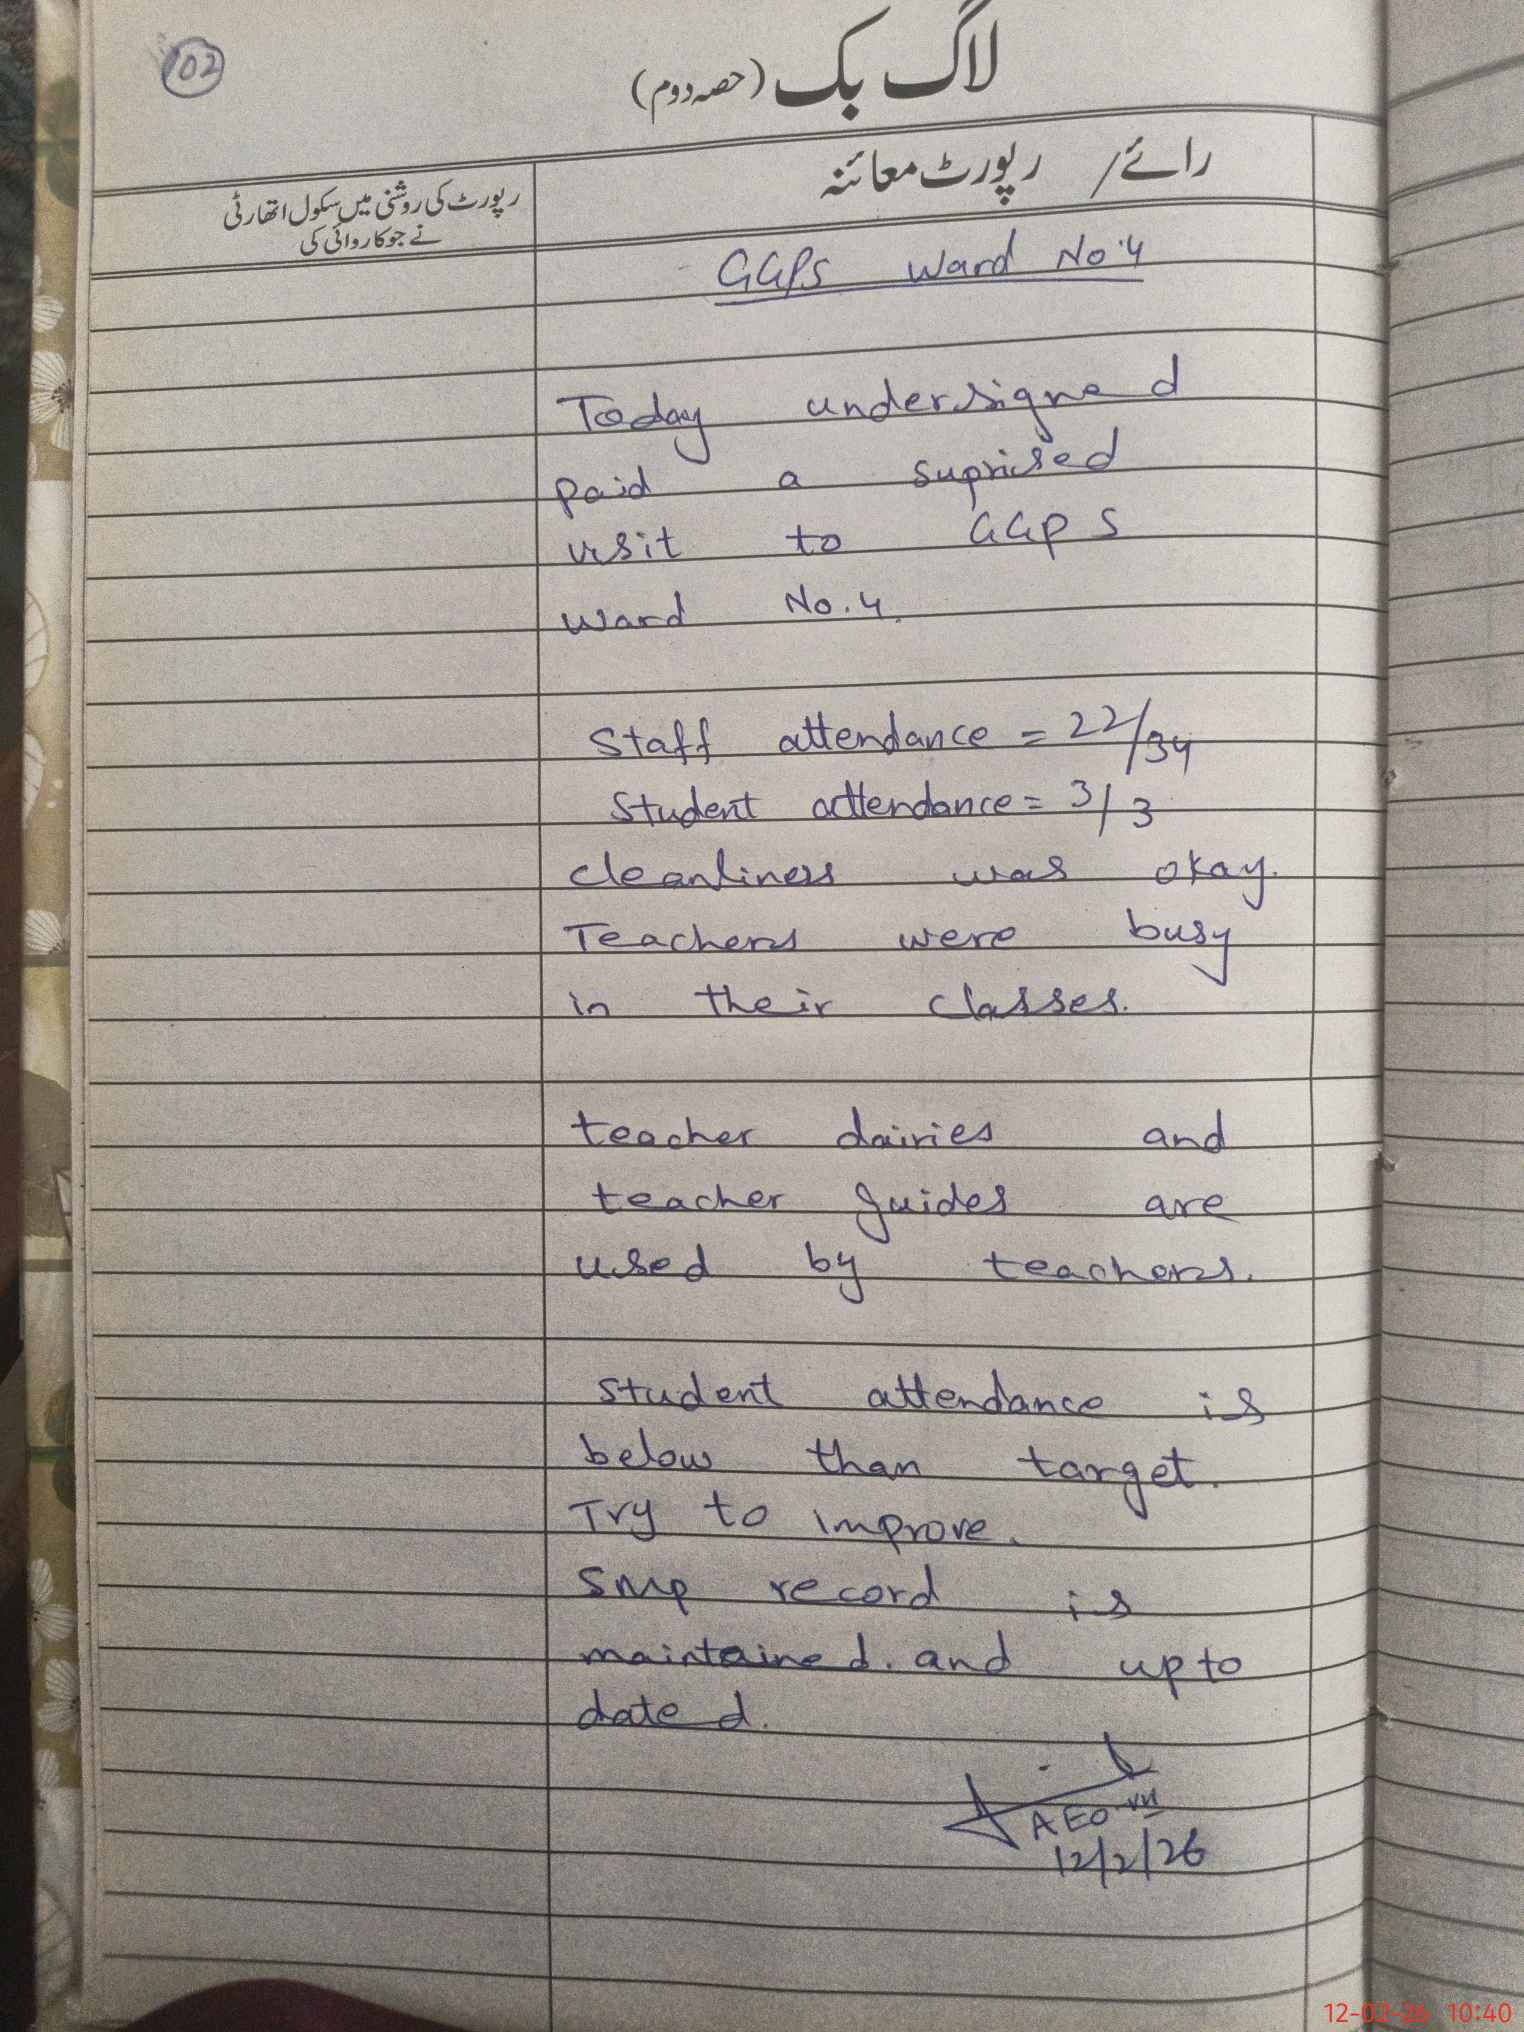 102
لاگ بک (حصہ دوم)
رائے / رپورٹ معائنہ
رپورٹ کی روشنی میں سکول اتھارٹی
نے جو کاروائی کی
GGPS Ward No.4
Today undersigned
paid a suprised
visit to GGPS
ward No.4.
Staff attendance = 22/34
Student attendance = 3/3
cleanliness was okay.
Teachers were busy
in their classes.
teacher dairies and
teacher guides are
used by teachers.
Student attendance is
below than target.
Try to improve.
SMP record is
maintained. and upto
dated.
AEO
12/2/26
12-02-26 10:40